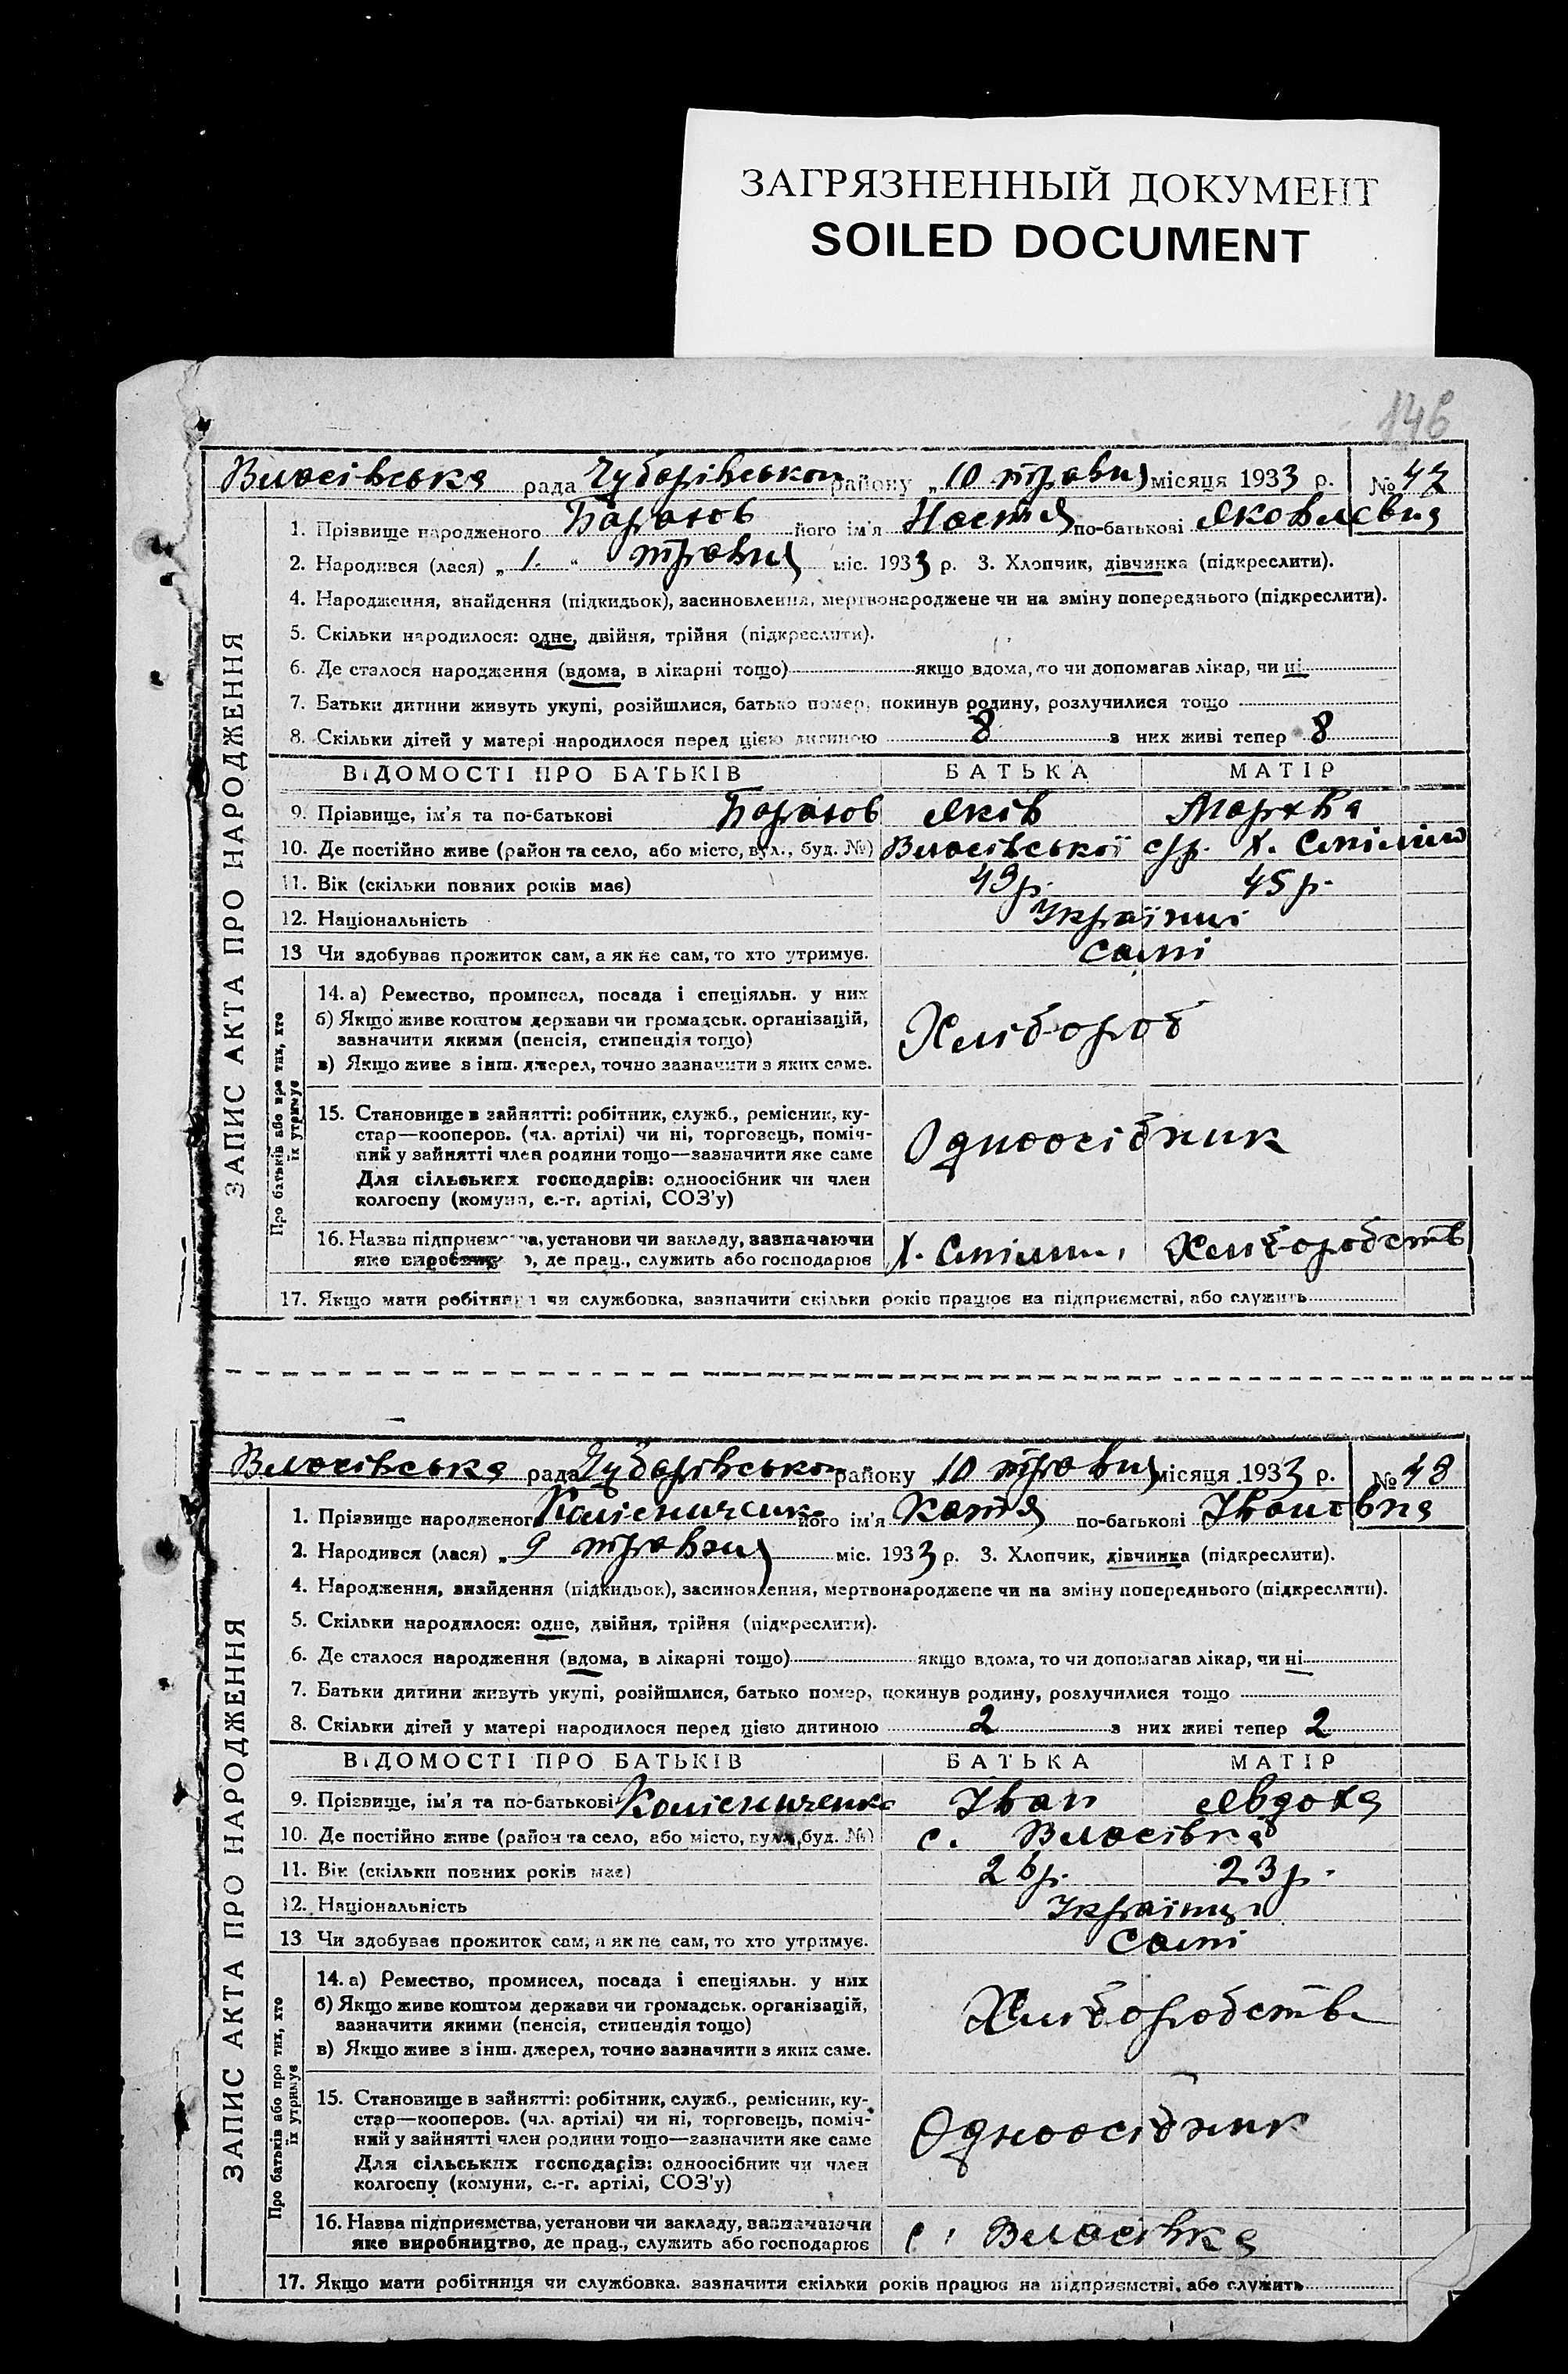 ЗАГРЯЗНЕННЫЙ ДОКУМЕНТ
SOILED DOCUMENT
146
Власівська рада Чубарівськог району „10 травня місяця 1933 р. № 47
ЗАПИС АКТА ПРО НАРОДЖЕННЯ
1. Прізвище народженого його ім'я Настя по-батькові Яковлєвна
2. Народився (лася) „1.“ травня міс. 1933 р. 3. Хлопчик, дівчинка (підкреслити).
4. Народження, знайдення (підкидьок), засиновлення, мертвонароджене чи на зміну попереднього (підкреслити).
5. Скільки народилося: одне, двійня, трійня (підкреслити).
6. Де сталося народження (вдома, в лікарні тощо) якщо вдома, то чи допомагав лікар, чи ні
7. Батьки дитини живуть укупі, розійшлися, батько помер, покинув родину, розлучилися тощо
8. Скільки дітей у матері народилося перед цією дитиною 8 з них живі тепер 8
ВІДОМОСТІ ПРО БАТЬКІВ БАТЬКА МАТІР
9. Прізвище, ім'я та по-батькові Яків Мархва
10. Де постійно живе (район та село, або місто, вул., буд. №) Власівської с/р. Х.
11. Вік (скільки повних років має) 49 р. 45 р.
12. Національність Українці
13 Чи здобуває прожиток сам, а як не сам, то хто утримує. Самі
Про батьків або про тих, хто їх утримує
14. а) Ремество, промисел, посада і спеціяльн. у них
б) Якщо живе коштом держави чи громадськ. організацій,
зазначити якими (пенсія, стипендія тощо)
в) Якщо живе з інш. джерел, точно зазначити з яких саме.
Хлібороб
15. Становище в зайнятті: робітник, служб., ремісник, ку-
стар—кооперов. (чл. артілі) чи ні, торговець, поміч-
ний у зайнятті член родини тощо—зазначити яке саме
Для сільських господарів: одноосібник чи член
колгоспу (комуни, с.-г. артілі, СОЗ'у)
Одноосібник
16. Назва підприємства, установи чи закладу, зазначаючи
яке виробництво, де прац., служить або господарює Х. Хліборобств
17. Якщо мати робітниця чи службовка, зазначити скільки років працює на підприємстві, або служить
Власівська рада Чубарівськог району „10 травня місяця 1933 р. № 48
ЗАПИС АКТА ПРО НАРОДЖЕННЯ
1. Прізвище народженого Колісниченко його ім'я Катя по-батькові Івановна
2. Народився (лася) „9 травня міс. 1933 р. 3. Хлопчик, дівчинка (підкреслити).
4. Народження, знайдення (підкидьок), засиновлення, мертвонароджене чи на зміну попереднього (підкреслити).
5. Скільки народилося: одне, двійня, трійня (підкреслити).
6. Де сталося народження (вдома, в лікарні тощо) якщо вдома, то чи допомагав лікар, чи ні
7. Батьки дитини живуть укупі, розійшлися, батько помер, покинув родину, розлучилися тощо
8. Скільки дітей у матері народилося перед цією дитиною 2 з них живі тепер 2
ВІДОМОСТІ ПРО БАТЬКІВ БАТЬКА МАТІР
9. Прізвище, ім'я та по-батькові Колісниченко Іван Явдоха
10. Де постійно живе (район та село, або місто, вул., буд. №) с. Власівка
11. Вік (скільки повних років має) 26 р. 23 р.
12. Національність Українці
13 Чи здобуває прожиток сам, а як не сам, то хто утримує. Самі
Про батьків або про тих, хто їх утримує
14. а) Ремество, промисел, посада і спеціяльн. у них
б) Якщо живе коштом держави чи громадськ. організацій,
зазначити якими (пенсія, стипендія тощо)
в) Якщо живе з інш. джерел, точно зазначити з яких саме.
Хліборобство
15. Становище в зайнятті: робітник, служб., ремісник, ку-
стар—кооперов. (чл. артілі) чи ні, торговець, поміч-
ний у зайнятті член родини тощо—зазначити яке саме
Для сільських господарів: одноосібник чи член
колгоспу (комуни, с.-г. артілі, СОЗ'у)
Одноосібник
16. Назва підприємства, установи чи закладу, зазначаючи
яке виробництво, де прац., служить або господарює с. Власівка
17. Якщо мати робітниця чи службовка. зазначити скільки років працює на підприємстві, або служить